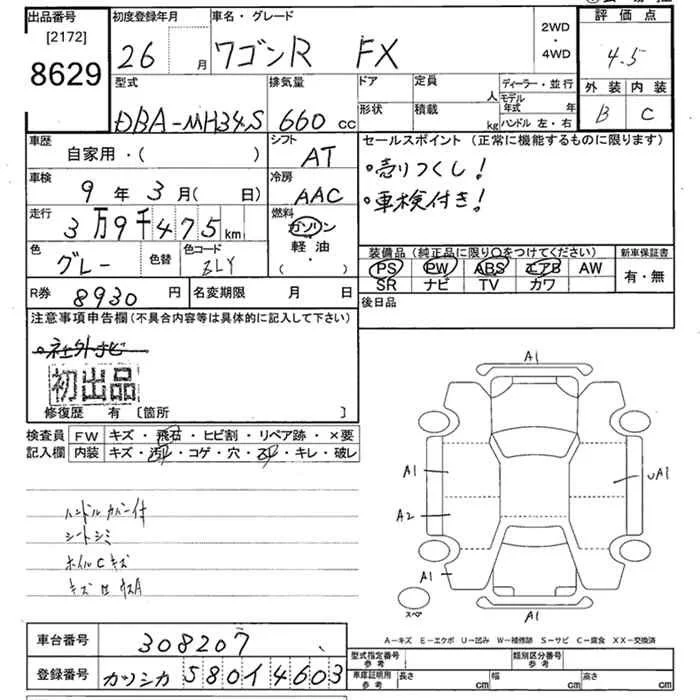 出品番号
[2172]
8629
初度登録年月
26 月
車名・グレード
ワゴンR FX
2WD
・
4WD
評価点
4.5
外装 内装
B C
型式
DBA-MH34S
排気量
660 CC
ドア
形状
定員 人
積載 kg
ディーラー・並行
モデル年式 年
ハンドル 左・右
車歴
自家用・( )
シフト
AT
車検
9年3月(日)
冷房
AAC
走行
3万9千475km
燃料
ガソリン
軽油
・( )
色
グレー
色替
色コード
ZLY
セールスポイント(正常に機能するものに限ります)
・売りつくし!
・車検付き!
装備品(純正品に限り○をつけてください)
PS PW ABS エアB AW
SR ナビ TV カワ
新車保証書
有・無
R券 8930円
名変期限 月 日
後日品
注意事項申告欄(不具合内容等は具体的に記入して下さい)
・社外ナビ
初出品
修復歴 有 〔箇所 〕
検査員記入欄
FW キズ・飛石・ヒビ割・リペア跡・×要
内装 キズ・汚れ・コゲ・穴・スレ・キレ・破レ
ハンドルカバー付
シートシミ
ホイルCキズ
A1
A1
A2
A1
UA1
A1
スペア
A-キズ E-エクボ U-凹み W-補修跡 S-サビ C-腐食 XX-交換済
車台番号 308207
登録番号 カツシカ 580イ4603
型式指定番号 参考
類別区分番号 参考
車庫証明用 参考
長さ cm 幅 cm 高さ cm